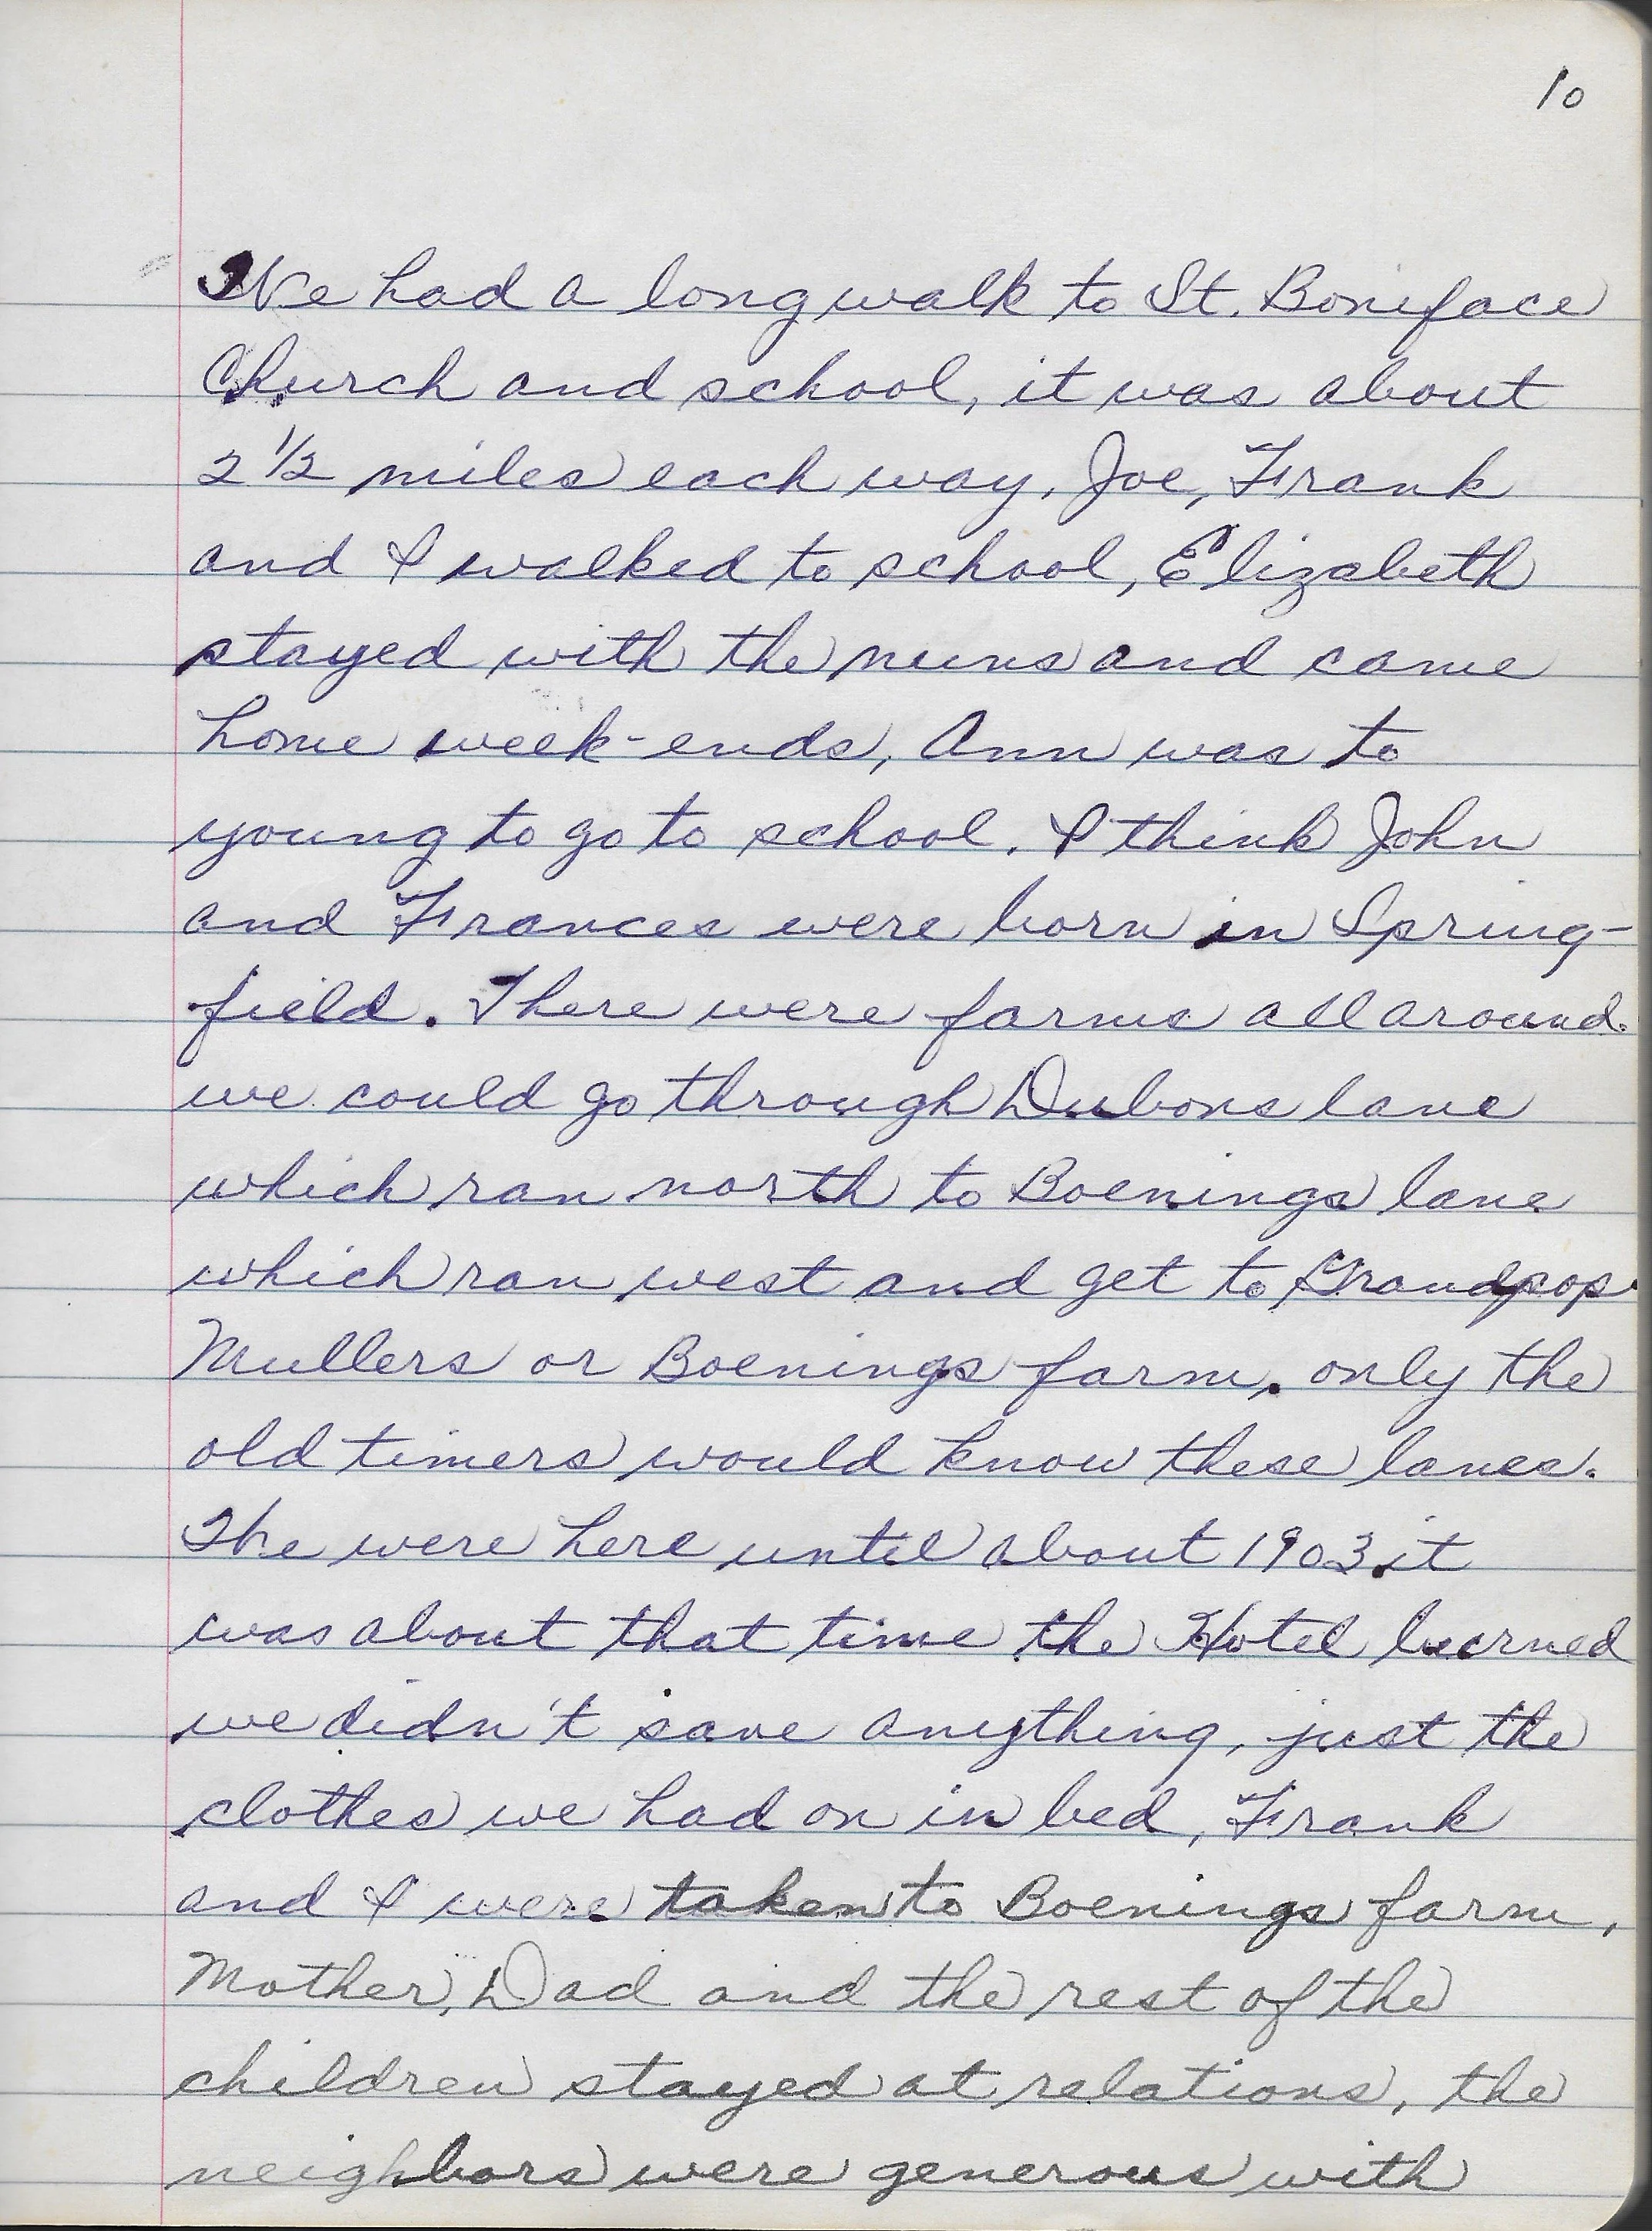 10
We had a long walk to St. Boniface
Church and school, it was about
2 1/2 miles each way. Joe, Frank
and I walked to school, Elizabeth
stayed with the nuns and came
home week-ends, Ann was to
young to go to school. I think John
and Frances were born in Spring-
field. There were farms all around.
we could go through Dubons lane
which ran north to Boenings lane
which ran west and get to Grandpop
Mullers or Boenings farm, only the
old timers would know these lanes.
The were here until about 1903 it
was about that time the Hotel burned
we didn't save anything, just the
clothes we had on in bed, Frank
and I were taken to Boenings farm,
Mother, Dad and the rest of the
children stayed at relations, the
neighbors were generous with